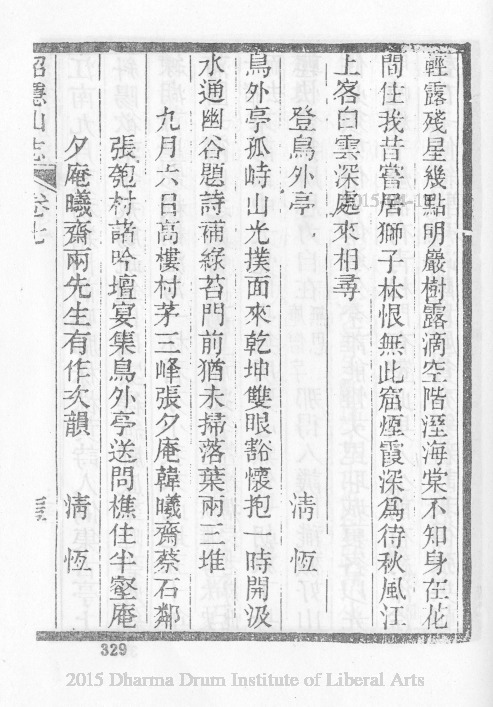 輕露殘星幾點明巖樹露滴空階溼海棠不知身在花
間住我昔嘗居獅子林恨無此窟煙霞深為待秋風江
上客白雲深處來相尋
登鳥外亭 清恆
鳥外亭孤峙山光撲面來乾坤雙眼豁懷抱一時開汲
水通幽谷題詩補綠苔門前猶未掃落葉兩三堆
九月六日高樓村茅三峰張夕庵韓曦齋蔡石鄰
張瓠村諸吟壇宴集鳥外亭送問樵住半壑庵
夕庵曦齋兩先生有作次韻 清恆
招隱山志 卷七
329
2015 Dharma Drum Institute of Liberal Arts